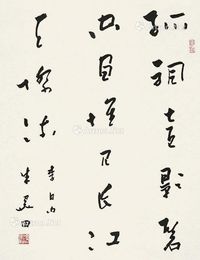 孤帆遠影碧
空盡惟見長江
天際流
李白句 朱關田